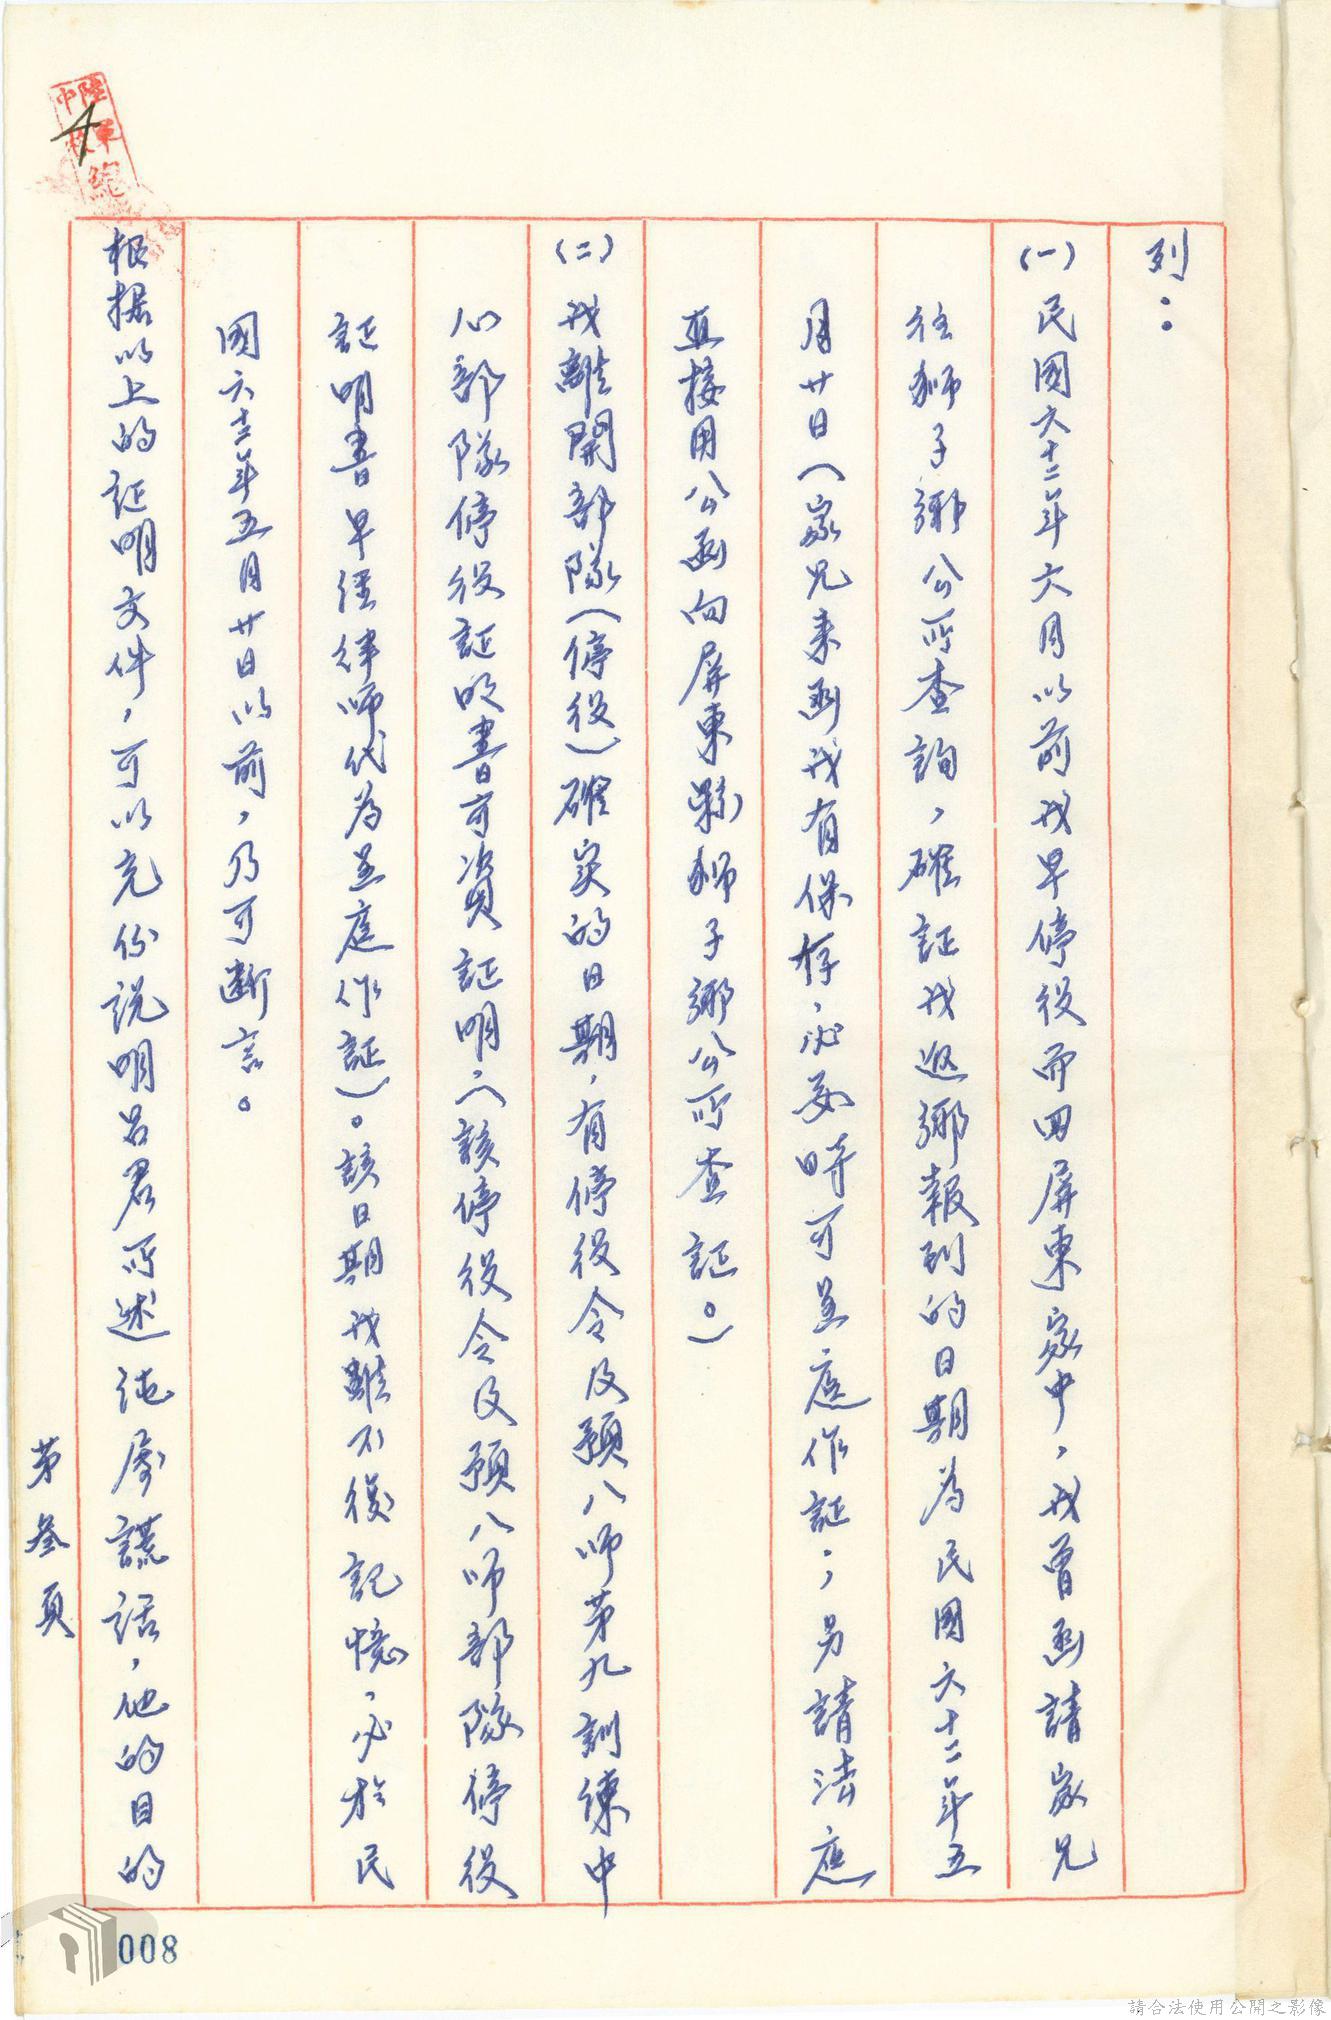 列：
(一)民國六十二年六月以前我早停役而回屏東家中，我曾函請家兄
往獅子鄉公所查詢，確証我返鄉報到的日期為民國六十二年五
月廿日(家兄來函我有保存，必要時可呈庭作証；另請法庭
直接用公函向屏東縣獅子鄉公所查証。)
(二)我離開部隊(停役)確实的日期，有停役令及預八師第九訓練中
心部隊停役証明書可資証明。(該停役令及預八師部隊停役
証明書早經律師代為呈庭作証)。該日期我雖不復記憶，必於民
國六十二年五月廿日以前，乃可斷言。
根据以上的証明文件，可以充份說明呂君所述純屬謊話，他的目的
第叁頁
008
請合法使用公開之影像